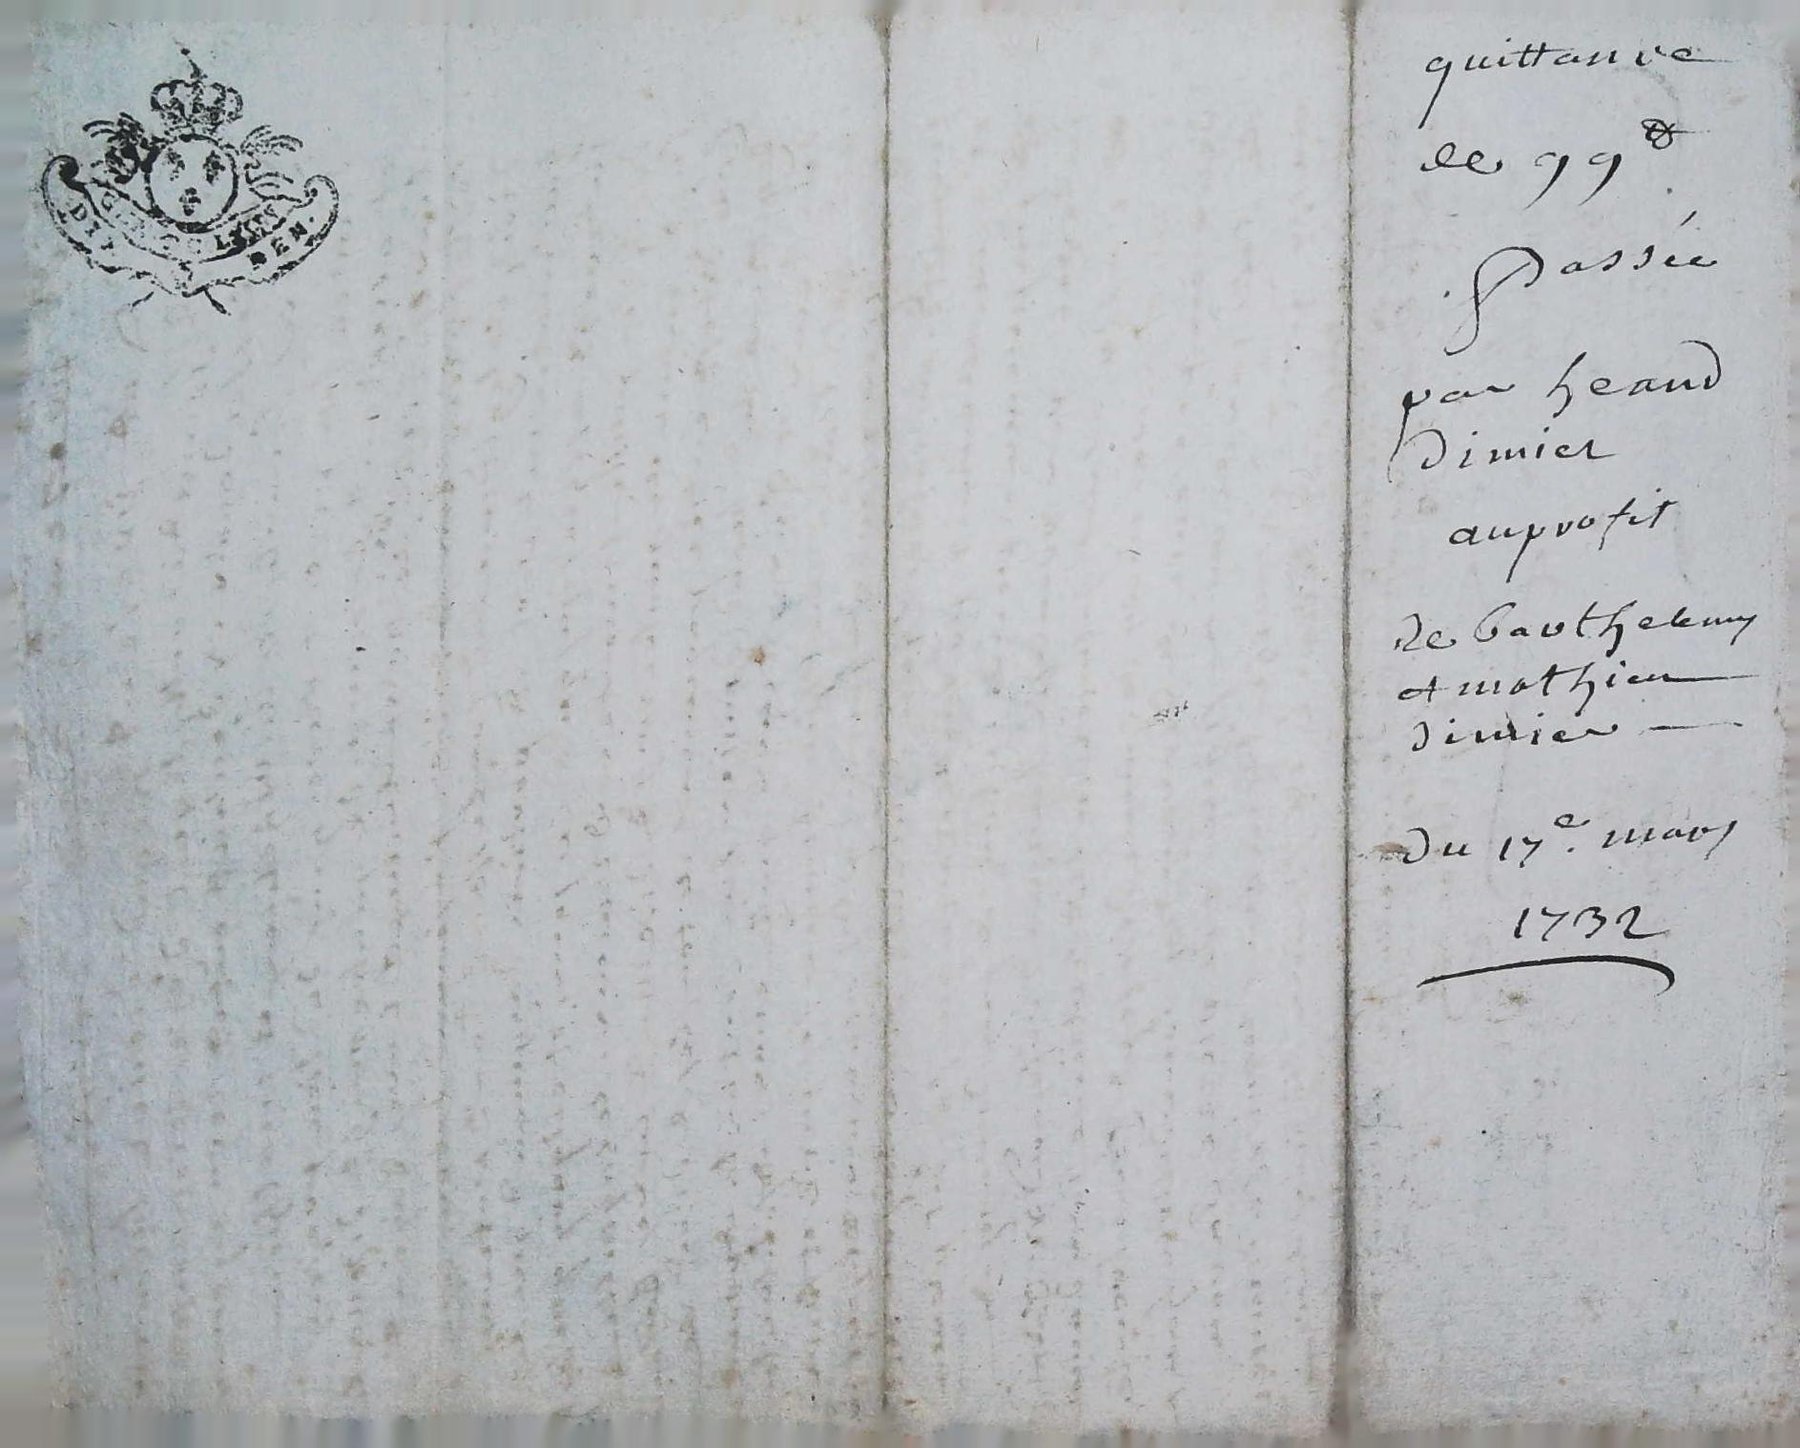 DIX DEN.
quittance
de 99 ₶
Passée
par heand
dimier
au profit
de barthelemy
et mathieu
dimier —
du 17e. mars
1732